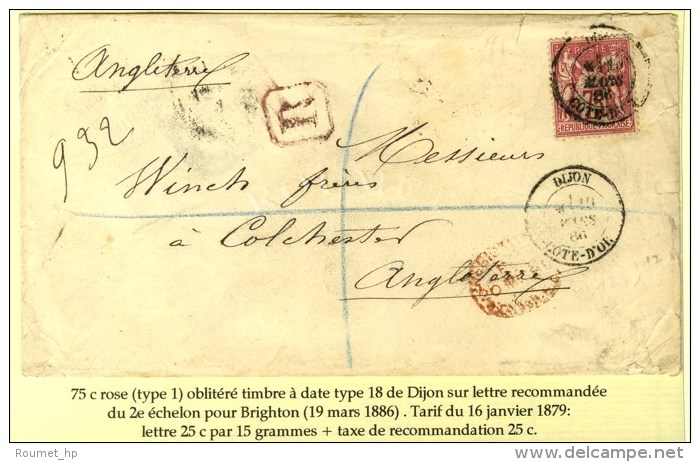 Angleterre
R
932
POSTE
MARS
86
COTE-D'
REPUBLIQUE FRANCAISE
Messieurs
Winch frères
à Colchester
Angleterre
DIJON
19
MARS
86
COTE-D'OR
75 c rose (type 1) oblitéré timbre à date type 18 de Dijon sur lettre recommandée
du 2e échelon pour Brighton (19 mars 1886) . Tarif du 16 janvier 1879:
lettre 25 c par 15 grammes + taxe de recommandation 25 c.
Roumet_hp
delcampe.net